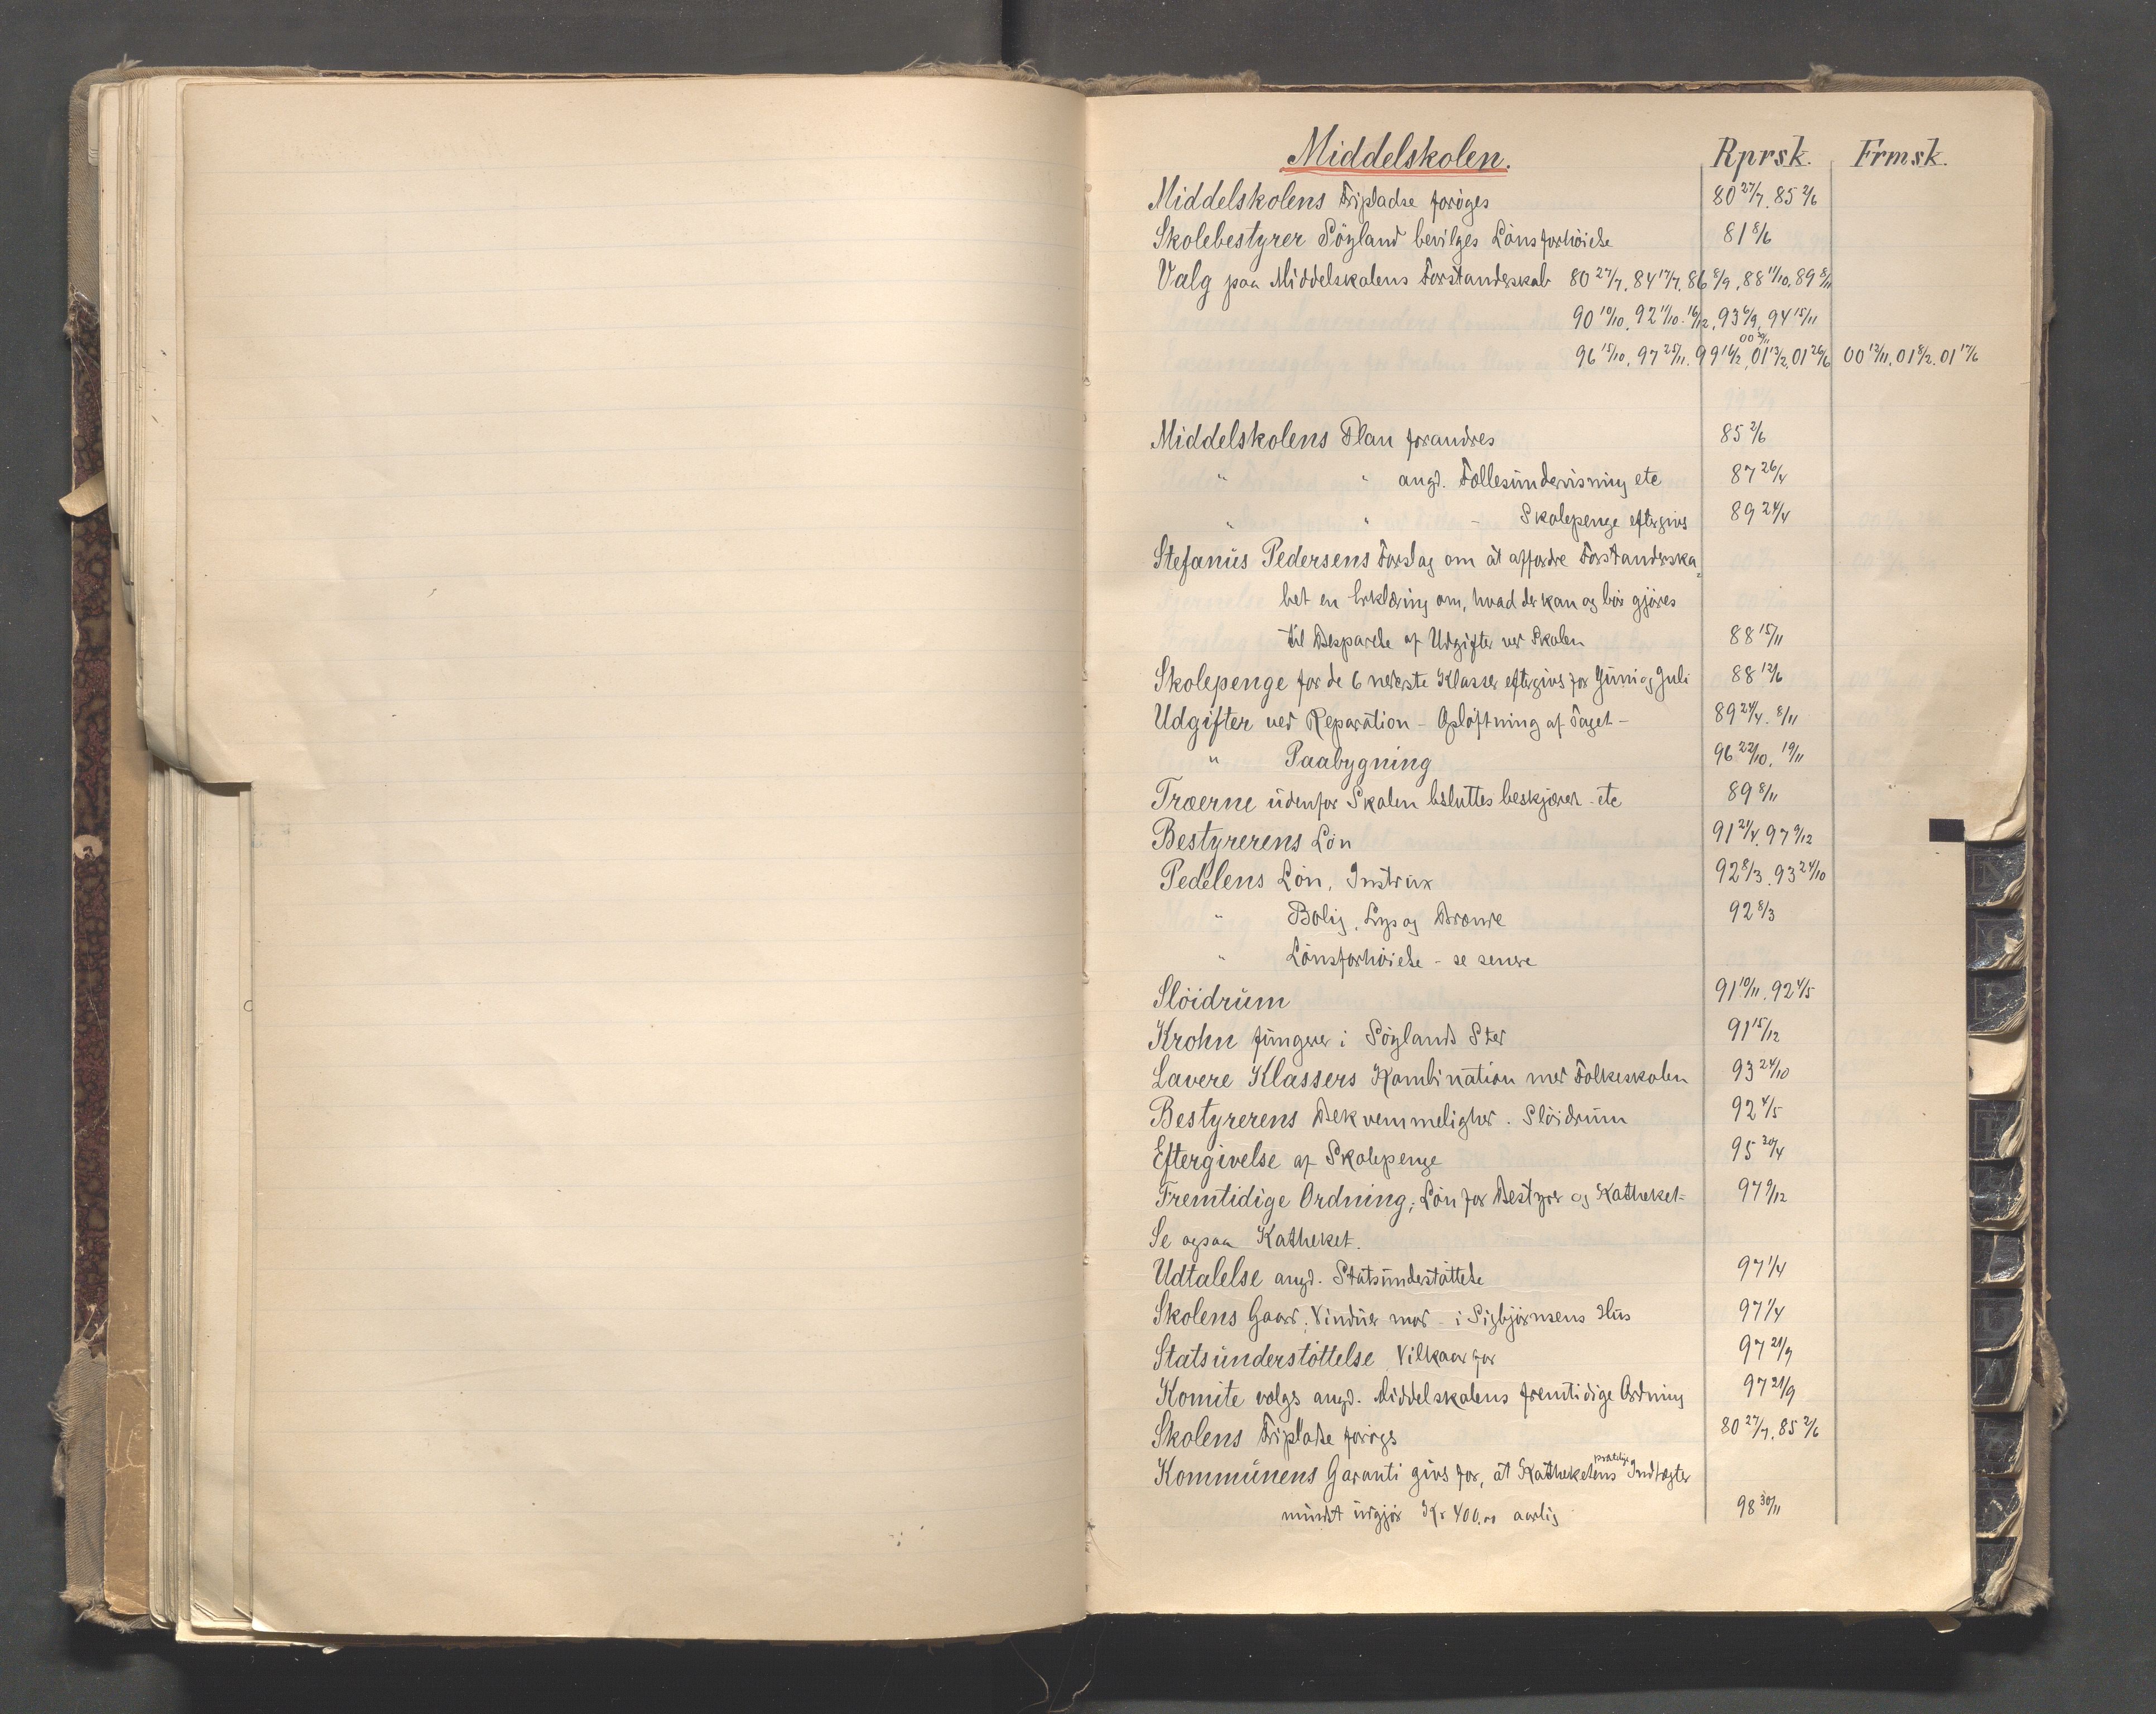 Middelskolen. Rprsk. Frmsk.
Middelskolens Fripladse forøges 80 27/7. 85 2/6
Skolebestyrer Söyland bevilges Lönsforhöielse 81 8/6
Valg paa Middelskolens Forstanderskab 80 27/7. 84 17/7. 86 8/9. 88 11/10. 89 8/11
90 10/10. 92 11/10. 16/12. 93 6/9. 94 15/11
00 30/11
96 15/10. 97 25/11. 99 16/2. 01 13/2. 01 26/6 00 13/11. 01 8/2. 01 17/6
Middelskolens Plan forandres 85 2/6
" " angd. Fællesundervisning etc 87 26/4
" " - Skolepenge eftergives 89 24/4
Stefanus Pedersens Forslag om at affordre Forstanderska„
bet en Erklæring om, hvad der kan og bör gjöres
til Besparelse af Udgifter ved Skolen 88 15/11
Skolepenge for de 6 nederste Klasser eftergives for Juni og Juli 88 12/6
Udgifter ved Reparation - Oplöftning af Taget - 89 24/4. 8/11
" Paabygning 96 22/10. 19/11
Træerne udenfor Skolen besluttes beskjæret - etc 89 8/11
Bestyrerens Lön 91 21/4. 97 9/12
Pedelens Lön, Instrux 92 8/3. 93 24/10
" Bolig, Lys og Brænde 92 8/3
" Lönsforhöielse - se senere
Slöidrum 91 10/11. 92 4/5
Krohn fungerer i Söylands Sted 91 15/12
Lavere Klassers Kombination med Folkeskolen 93 24/10
Bestyrerens Bekvemmeligheder. Slöidrum 92 4/5
Eftergivelse af Skolepenge 95 30/4
Fremtidige Ordning; Lön for Bestyrer og Katheket - 97 9/12
Se ogsaa Katheket.
Udtalelse angd. Statsunderstöttelse 97 1/4
Skolens Gaard; Vinduer mod - i Sigbjörnsens Hus 97 1/4
Statsunderstöttelse, Vilkaar for 97 21/9
Komite vælges angd. Middelskolens fremtidige Ordning 97 21/9
Skolens Fripladse foröges 80 27/7. 85 2/6
Kommunens Garanti gives for, at Kathekelens prestelige Indtægter
mindst udgjör Kr 400.00 aarlig 98 30/11